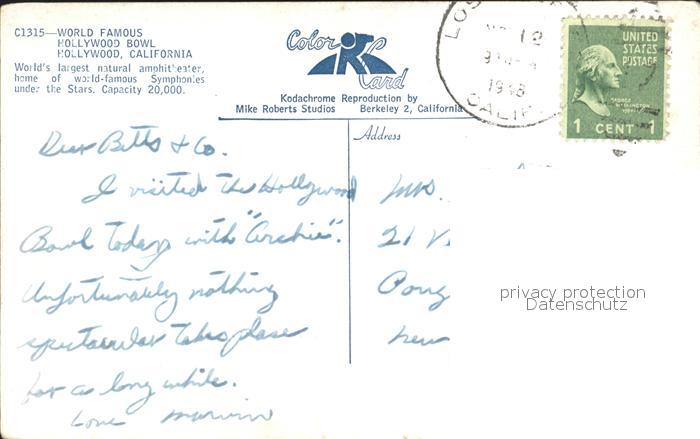 C1315—WORLD FAMOUS
HOLLYWOOD BOWL
HOLLYWOOD, CALIFORNIA
World's largest natural amphitheater,
home of world-famous Symphonies
under the Stars. Capacity 20,000.
Color Card
Kodachrome Reproduction by
Mike Roberts Studios Berkeley 2, California
LOS
12
1948
CALIF
UNITED
STATES
POSTAGE
GEORGE
WASHINGTON
1 CENT 1
Address
Dear Betts & Co.
I visited the Hollywood
Bowl today with "Archie".
Unfortunately nothing
spectacular takes place
for a long while.
Love Marvin
Mr.
21
Poug
New
privacy protection
Datenschutz